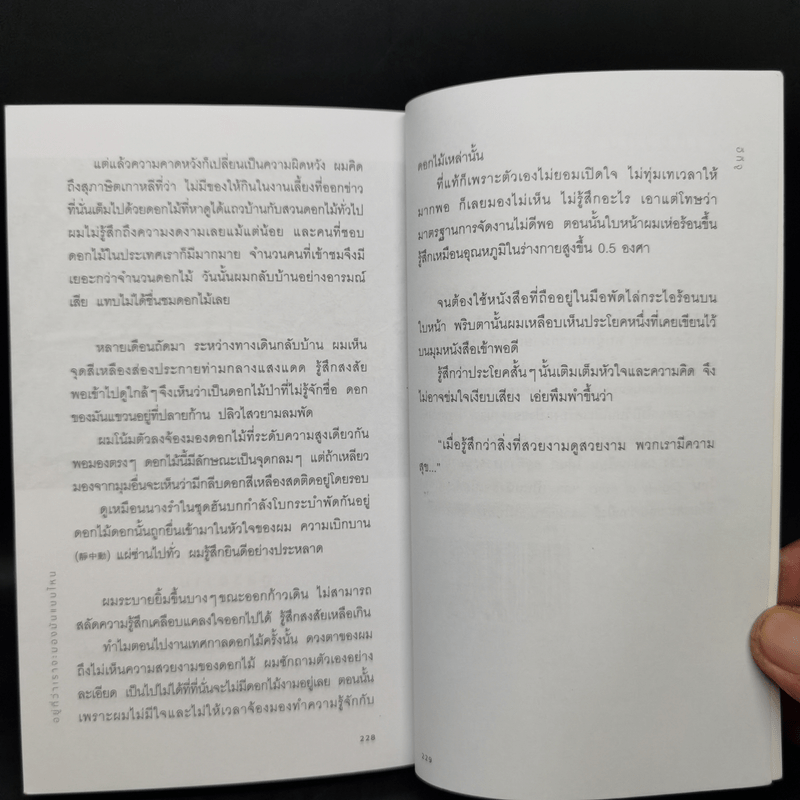 แต่แล้วความคาดหวังก็เปลี่ยนเป็นความผิดหวัง ผมคิด
ถึงสุภาษิตเกาหลีที่ว่า ไม่มีของให้กินในงานเลี้ยงที่ออกข่าว
ที่นั่นเต็มไปด้วยดอกไม้ที่หาดูได้แถวบ้านกับสวนดอกไม้ทั่วไป
ผมไม่รู้สึกถึงความงดงามเลยแม้แต่น้อย และคนที่ชอบ
ดอกไม้ในประเทศเราก็มีมากมาย จำนวนคนที่เข้าชมจึงมี
เยอะกว่าจำนวนดอกไม้ วันนั้นผมกลับบ้านอย่างอารมณ์
เสีย แทบไม่ได้ชื่นชมดอกไม้เลย
หลายเดือนถัดมา ระหว่างทางเดินกลับบ้าน ผมเห็น
จุดสีเหลืองส่องประกายท่ามกลางแสงแดด รู้สึกสงสัย
พอเข้าไปดูใกล้ๆจึงเห็นว่าเป็นดอกไม้ป่าที่ไม่รู้จักชื่อ ดอก
ของมันแขวนอยู่ที่ปลายก้าน ปลิวไสวยามลมพัด
ผมโน้มตัวลงจ้องมองดอกไม้ที่ระดับความสูงเดียวกัน
พอมองตรงๆ ดอกไม้นี้มีลักษณะเป็นจุดกลมๆ แต่ถ้าเหลียว
มองจากมุมอื่นจะเห็นว่ามีกลีบดอกสีเหลืองสดติดอยู่โดยรอบ
ดูเหมือนนางรำในชุดฮันบกกำลังโบกระบำพัดกันอยู่
ดอกไม้ดอกนั้นถูกยื่นเข้ามาในหัวใจของผม ความเบิกบาน
(靜中動) แผ่ซ่านไปทั่ว ผมรู้สึกยินดีอย่างประหลาด
ผมระบายยิ้มขึ้นบางๆขณะออกก้าวเดิน ไม่สามารถ
สลัดความรู้สึกเคลือบแคลงใจออกไปได้ รู้สึกสงสัยเหลือเกิน
ทำไมตอนไปงานเทศกาลดอกไม้ครั้งนั้น ดวงตาของผม
ถึงไม่เห็นความสวยงามของดอกไม้ ผมซักถามตัวเองอย่าง
ละเอียด เป็นไปไม่ได้ที่ที่นั่นจะไม่มีดอกไม้งามอยู่เลย ตอนนั้น
เพราะผมไม่มีใจและไม่ให้เวลาจ้องมองทำความรู้จักกับ
228
ดอกไม้เหล่านั้น
ที่แท้ก็เพราะตัวเองไม่ยอมเปิดใจ ไม่ทุ่มเทเวลาให้
มากพอ ก็เลยมองไม่เห็น ไม่รู้สึกอะไร เอาแต่โทษว่า
มาตรฐานการจัดงานไม่ดีพอ ตอนนั้นใบหน้าผมเห่อร้อนขึ้น
รู้สึกเหมือนอุณหภูมิในร่างกายสูงขึ้น 0.5 องศา
จนต้องใช้หนังสือที่ถืออยู่ในมือพัดไล่กระไอร้อนบน
ใบหน้า พริบตานั้นผมเหลือบเห็นประโยคหนึ่งที่เคยเขียนไว้
บนมุมหนังสือเข้าพอดี
รู้สึกว่าประโยคสั้นๆนั้นเติมเต็มหัวใจและความคิด จึง
ไม่อาจข่มใจเงียบเสียง เอ่ยพึมพำขึ้นว่า
“เมื่อรู้สึกว่าสิ่งที่สวยงามดูสวยงาม พวกเรามีความ
สุข...”
229